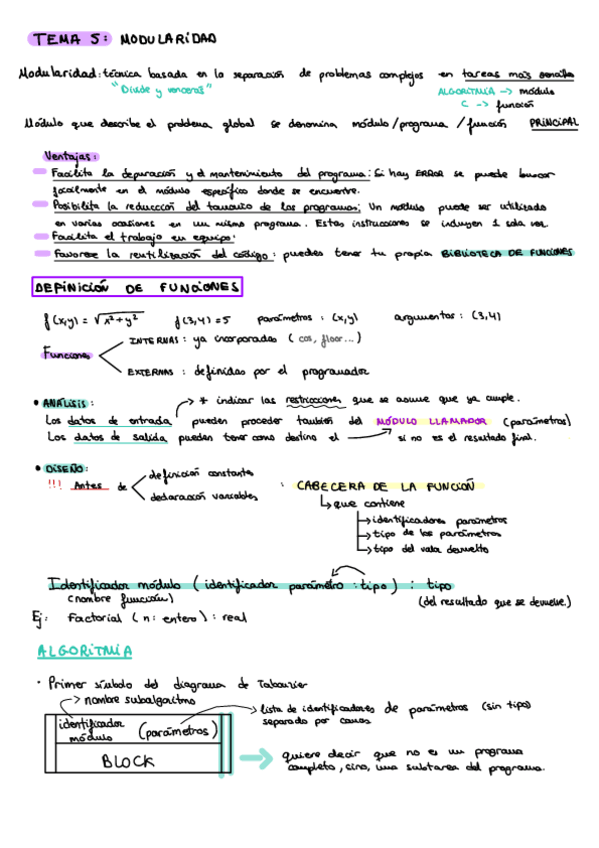 TEMA 5: MODULARIDAD
Modularidad: técnica basada en la separación de problemas complejos en tareas más sencillas
"Divide y vencerás" ALGORITMIA -> módulo
C -> función
Módulo que describe el problema global se denomina módulo/programa/función PRINCIPAL
Ventajas:
Facilita la depuración y el mantenimiento del programa: Si hay ERROR se puede buscar
facilmente en el módulo específico donde se encuentre.
Posibilita la reducción del tamaño de los programas: Un módulo puede ser utilizado
en varias ocasiones en un mismo programa. Estas instrucciones se incluyen 1 sola vez.
Facilita el trabajo en equipo.
Favorece la reutilización del código: puedes tener tu propia BIBLIOTECA DE FUNCIONES
DEFINICIÓN DE FUNCIONES
f(x,y) = √x²+y² f(3,4)=5 parámetros: (x,y) argumentos: (3,4)
Funciones
INTERNAS: ya incorporadas (cos, floor...)
EXTERNAS: definidas por el programador
• ANÁLISIS: * indicar las restricciones que se asume que ya cumple.
Los datos de entrada pueden proceder también del MÓDULO LLAMADOR (parámetros)
Los datos de salida pueden tener como destino el si no es el resultado final.
• DISEÑO:
!!! Antes de
definición constantes
declaración variables
: CABECERA DE LA FUNCIÓN
que contiene
identificadores parámetros
tipo de los parámetros
tipo del valor devuelto
Identificador módulo (identificador parámetro: tipo) : tipo
(nombre función) (del resultado que se devuelve.)
Ej: Factorial (n: entero): real
ALGORITMIA
· Primer símbolo del diagrama de Tabourier
nombre subalgoritmo
lista de identificadores de parámetros (sin tipo)
separado por comas
identificador módulo (parámetros)
BLOCK
quiere decir que no es un programa
completo, sino, una subtarea del programa.